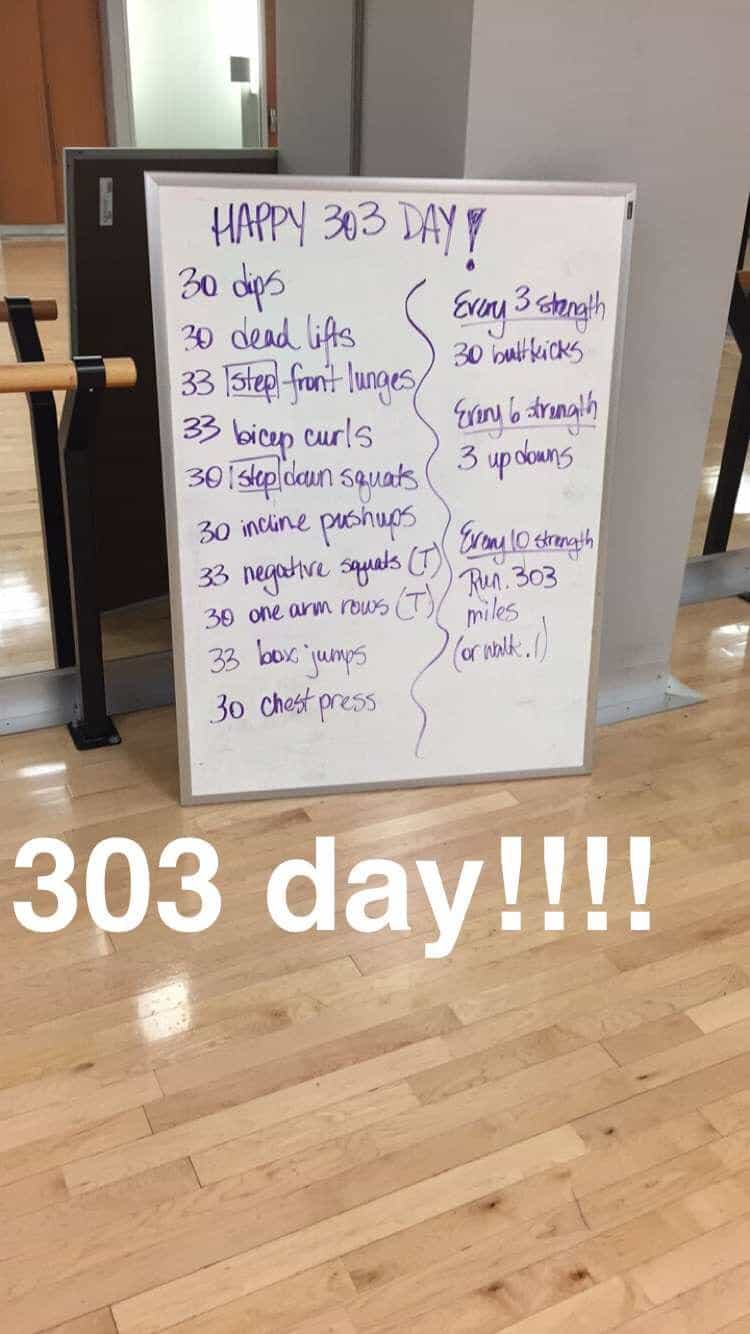 HAPPY 303 DAY!
30 dips
30 dead lifts
33 step front lunges
33 bicep curls
30 step down squats
30 incline pushups
33 negative squats (T)
30 one arm rows (T)
33 box jumps
30 chest press
Every 3 strength
30 buttkicks
Every 6 strength
3 up downs
Every 10 strength
Run .303
miles
(or walk .1)
303 day!!!!